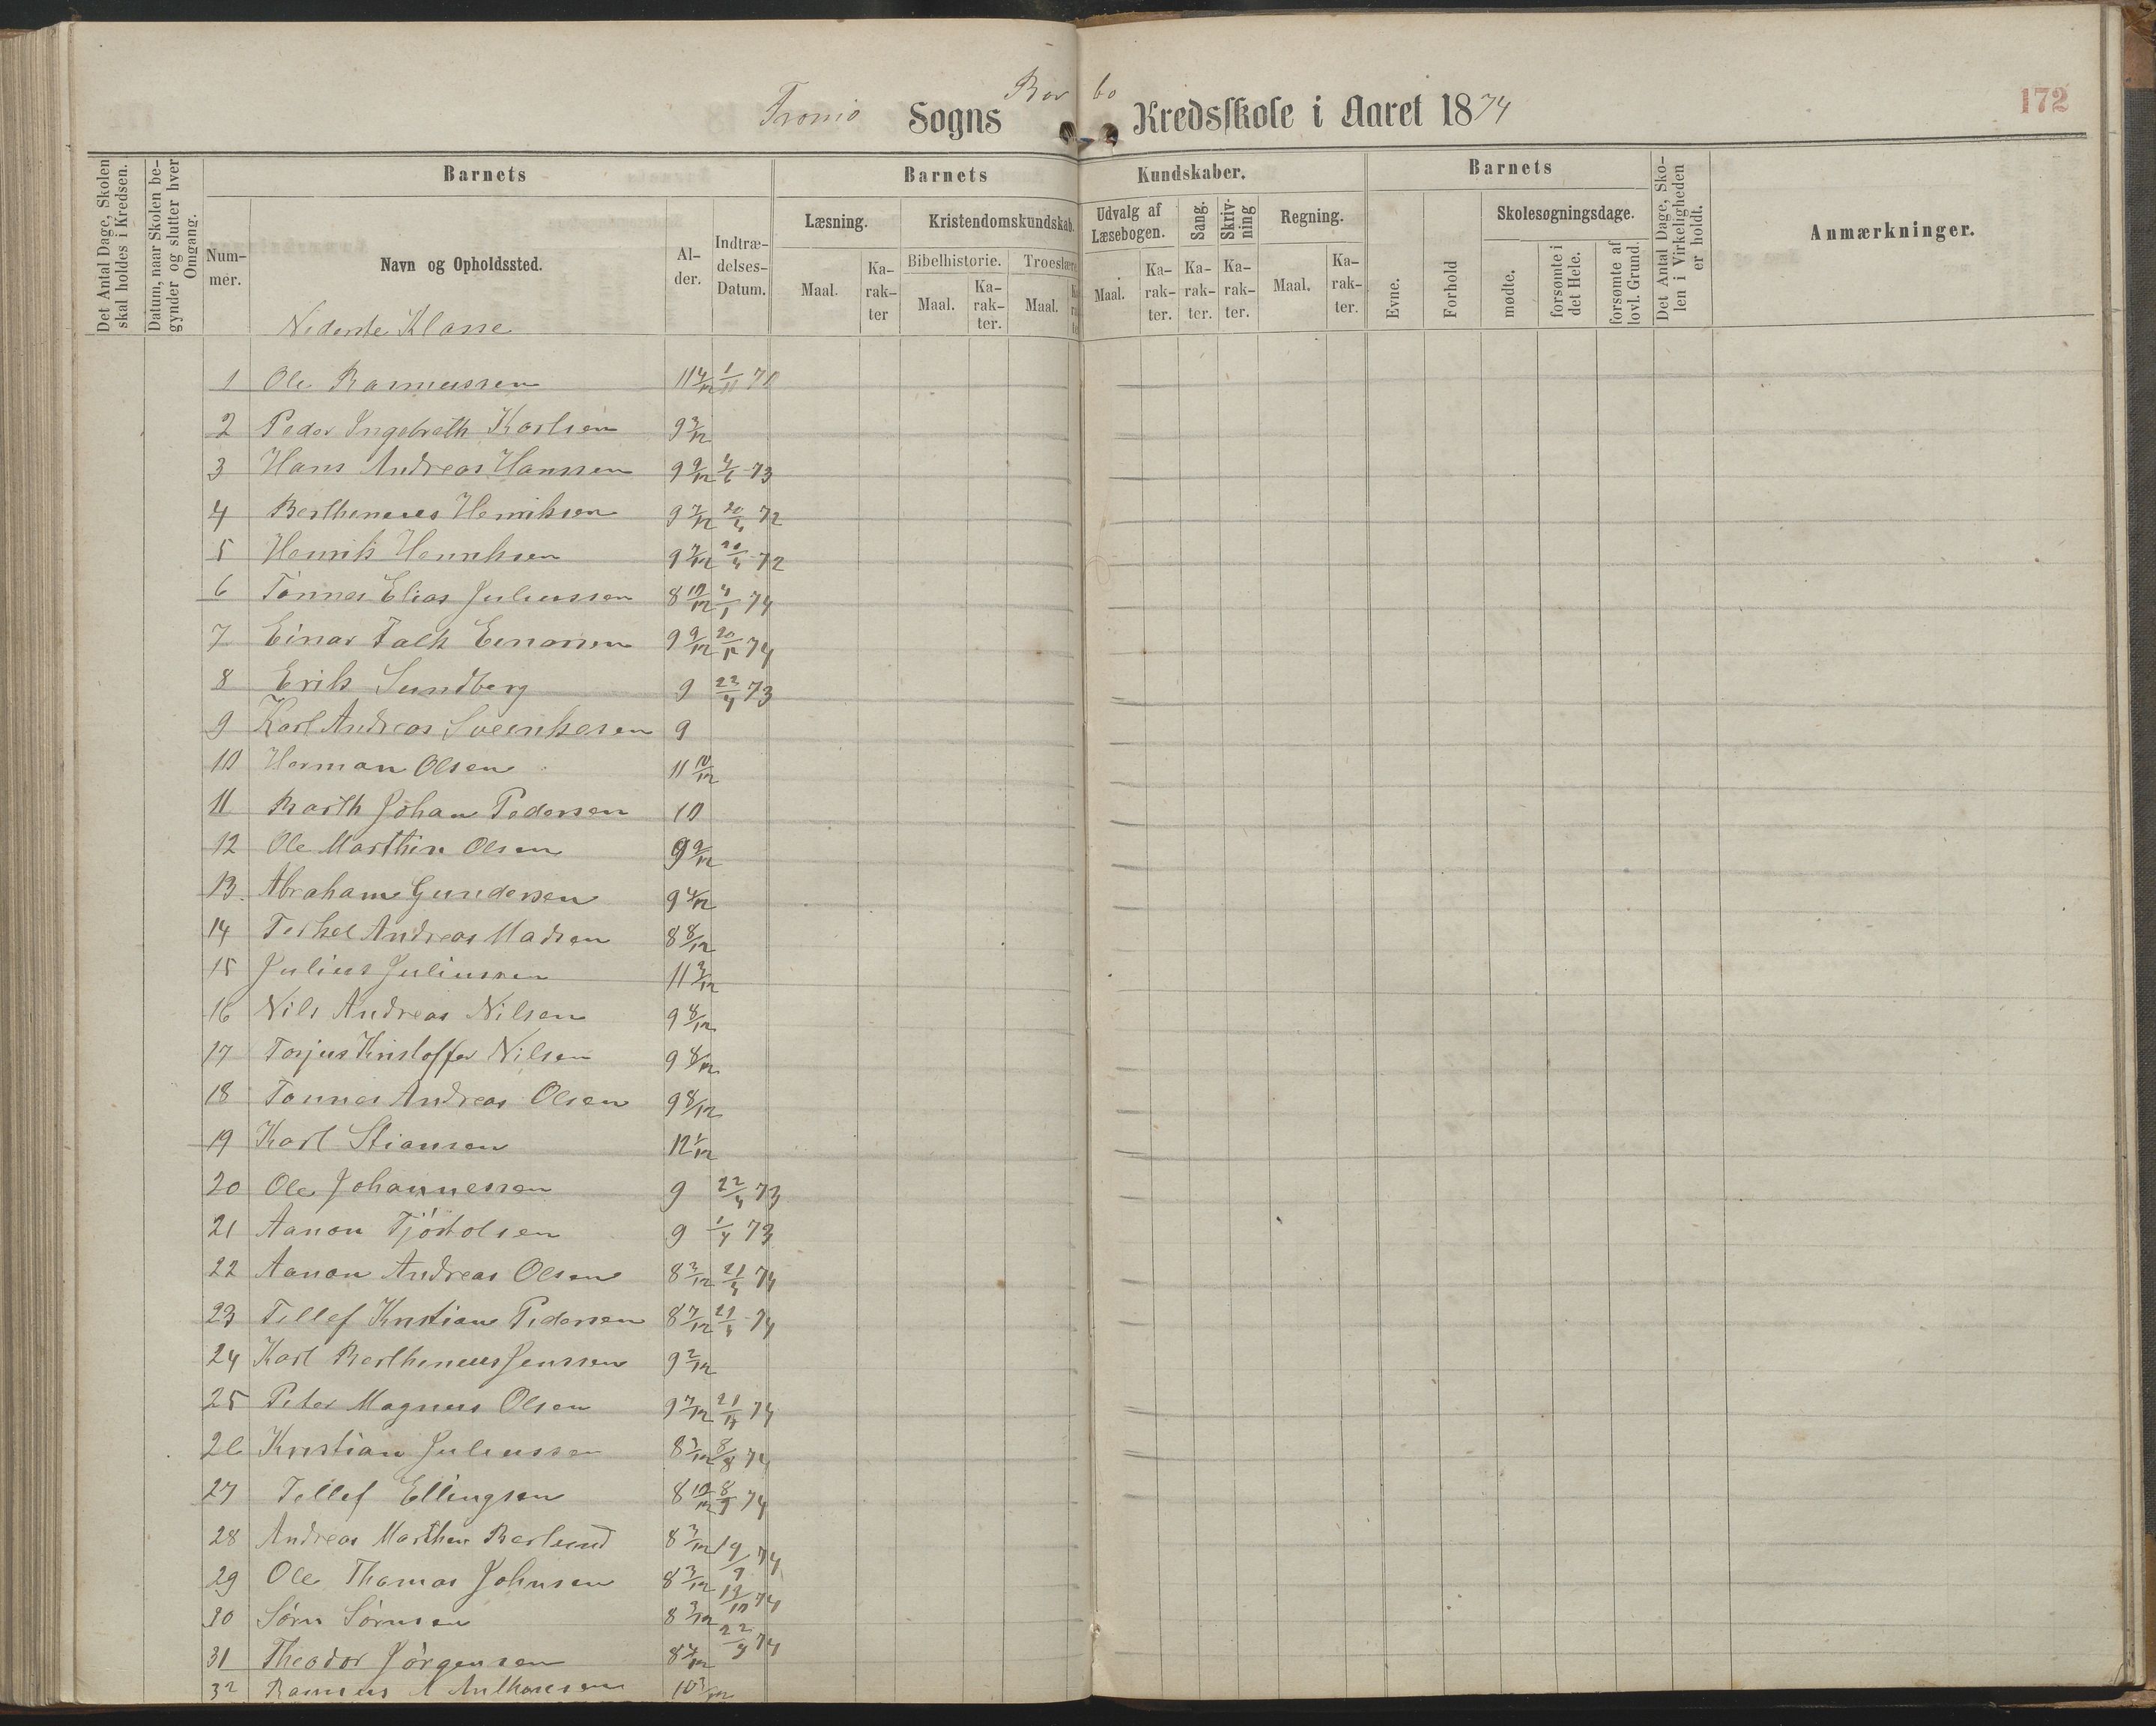 Tromø Sogns Barbo Kredsskole i Aaret 1874
172
Det Antal Dage, Skolen skal holdes i Kredsen.
Datum, naar Skolen begynder og slutter hver Omgang.
Barnets
Nummer.
Navn og Opholdssted.
Alder.
Indtrædelses-Datum.
Barnets Kundskaber.
Læsning.
Maal. Karakter
Kristendomskundskab.
Bibelhistorie. Troeslære
Maal. Karakter. Maal.
Udvalg af Læsebogen.
Maal. Karakter.
Sang. Karakter.
Skrivning Karakter.
Regning.
Maal. Karakter.
Barnets
Evne.
Forhold
Skolesøgningsdage.
mødte.
forsømte i det Hele.
forsømte af lovl. Grund.
Det Antal Dage, Skolen i Virkeligheden er holdt.
Anmærkninger.
Nederste Klasse
1 Ole Rasmussen 11 4/12 1/11 71
2 Peder Ingebreth Karlsen 9 3/12
3 Hans Andreas Hanssen 9 9/12 4/6 73
4 Berthineus Henriksen 9 7/12 20/4 72
5 Henrik Henriksen 9 7/12 20/4 72
6 Tønnes Elias Juliussen 8 10/12 4/1 74
7 Einar Falk Einarsen 9 9/12 20/12 74
8 Erik Sundberg 9 22/4 73
9 Karl Andreas Sveinksen 9
10 Herman Olsen 11 10/12
11 Barth Johan Pedersen 10
12 Ole Marthin Olsen 9 9/12
13. Abraham Gundersen 9 4/12
14 Terkel Andreas Madsen 8 8/12
15 Julius Juliussen 11 3/12
16 Nils Andreas Nilsen 9 8/12
17 Torjus Kristoffer Nilsen 9 8/12
18 Tønnes Andreas Olsen 9 8/12
19 Karl Stiansen 12 1/12
20 Ole Johannessen 9 22/4 73
21 Aanon Tjøstolsen 9 1/4 73
22 Aanon Andreas Olsen 8 3/12 21/4 74
23 Tellef Kristian Pedersen 8 7/12 21/4 74
24 Karl Berthineus Jenssen 9 2/12
25 Peter Magnus Olsen 9 7/12 21/4 74
26 Kristian Juliussen 8 3/12 8/8 74
27 Tellef Ellingsen 8 10/12 8/9 74
28 Andreas Marthin Berlund 8 3/12 14/9 74
29 Ole Thomas Johnsen 8 3/12 12/10 74
30 Sørn Sørnsen 8 3/12 22/9 74
31 Theodor Jørgensen 8 4/12
32 Rasmus A Anthonsen 10 3/12